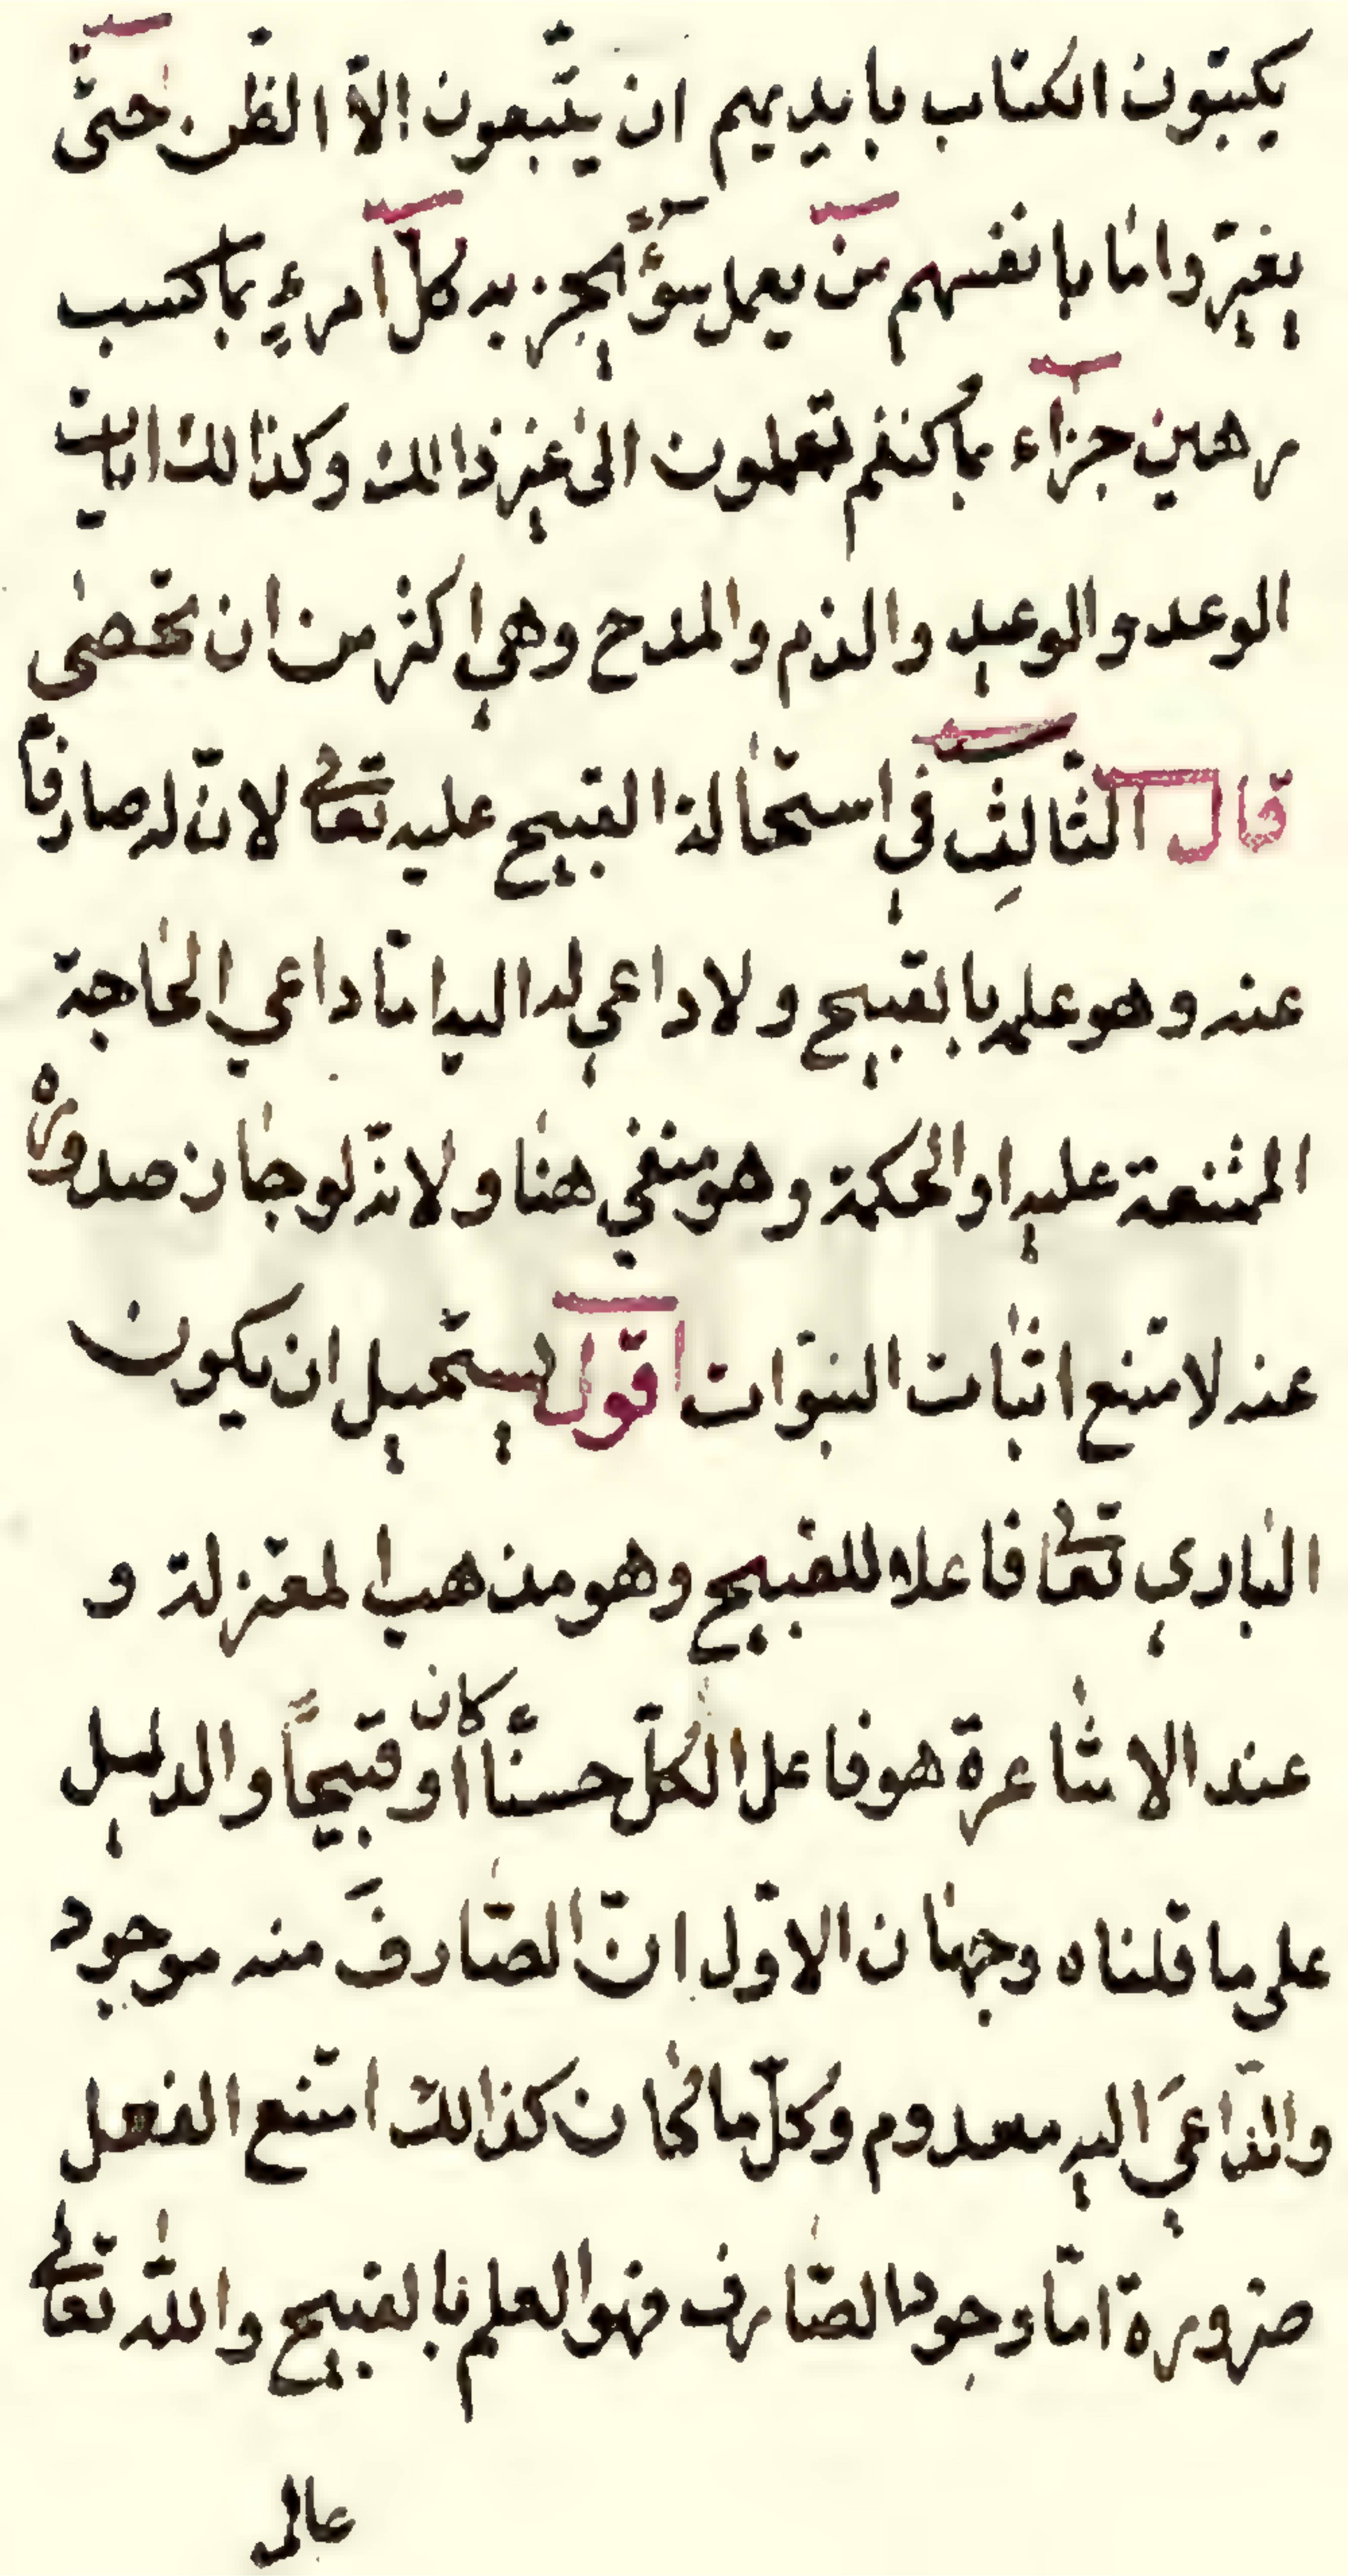 يكتبون الكتاب بايديهم ان يتّبعون إلاّ الظّن حتىّ
يغيرّوا ما بانفسهم من يعمل سوءً يجز به كلّ امرءٍ بما كسب
رهين جزآء بما كنتم تعملون الى غير ذالك وكذالك ايات
الوعد والوعيد والذم والمدح وهي اكثر من ان تحصى
قال الثّالثِ في استحالة القبيح عليه تعالى لانّ له صارفاً
عنه وهو علمه بالقبيح ولا داعي له اليه امّا داعي الحاجة
الممتنعة عليه او الحكمة وهو منفي هنا ولانّه لو جاز صدوره
عنه لامتنع اثبات النبوّات اقول يستحيل ان يكون
الباري تعالى فاعلا للقبيح وهو مذهب المعتزلة و
عند الاشاعرة هو فاعل الكلّ حسنًا كان او قبيحًا والدليل
على ما قلناه وجهان الاوّل انّ الصّارفَ منه موجود
والدّاعيَ اليه معدوم وكلّ ما كان كذالك امتنع الفعل
ضرورة امّا وجود الصّارف فهو العلم بالقبيح والله تعالى
عالم